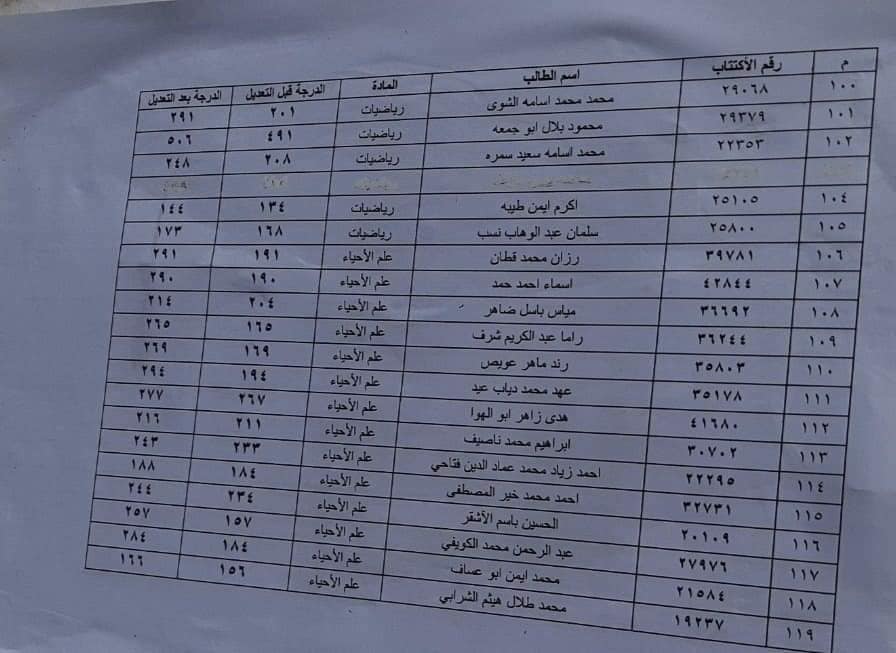 م رقم الأكتتاب اسم الطالب المادة الدرجة قبل التعديل الدرجة بعد التعديل
١٠٠ ٢٩٠٦٨ محمد محمد اسامه الشوى رياضيات ٢٠١ ٢٩١
١٠١ ٢٩٣٧٩ محمود بلال ابو جمعه رياضيات ٤٩١ ٥٠٦
١٠٢ ٢٢٣٥٣ محمد اسامه سعيد سمره رياضيات ٢٠٨ ٢٤٨
١٠٤ ٢٥١٠٥ اكرم ايمن طيبه رياضيات ١٣٤ ١٤٤
١٠٥ ٢٥٨٠٠ سلمان عبد الوهاب نسب رياضيات ١٦٨ ١٧٣
١٠٦ ٣٩٧٨١ رزان محمد قطان علم الأحياء ١٩١ ٢٩١
١٠٧ ٤٢٨٤٤ اسماء احمد حمد علم الأحياء ١٩٠ ٢٩٠
١٠٨ ٣٦٦٩٢ مياس باسل ضاهر علم الأحياء ٢٠٤ ٢١٤
١٠٩ ٣٦٢٤٤ راما عبد الكريم شرف علم الأحياء ١٦٥ ٢٦٥
١١٠ ٣٥٨٠٣ رند ماهر عويص علم الأحياء ١٦٩ ٢٦٩
١١١ ٣٥١٧٨ عهد محمد دياب عيد علم الأحياء ١٩٤ ٢٩٤
١١٢ ٤١٦٨٠ هدى زاهر ابو الهوا علم الأحياء ٢٦٧ ٢٧٧
١١٣ ٣٠٧٠٢ ابراهيم محمد ناصيف علم الأحياء ٢١١ ٢١٦
١١٤ ٢٢٢٩٥ احمد زياد محمد عماد الدين فتاحي علم الأحياء ٢٣٣ ٢٤٣
١١٥ ٣٢٧٣١ احمد محمد خير المصطفى علم الأحياء ١٨٤ ١٨٨
١١٦ ٢٠١٠٩ الحسين باسم الأشقر علم الأحياء ٢٣٤ ٢٤٤
١١٧ ٢٧٩٧٦ عبد الرحمن محمد الكويفي علم الأحياء ١٥٧ ٢٥٧
١١٨ ٢١٥٨٤ محمد ايمن ابو عساف علم الأحياء ١٨٤ ٢٨٤
١١٩ ١٩٢٣٧ محمد طلال هيثم الشرابي علم الأحياء ١٥٦ ١٦٦